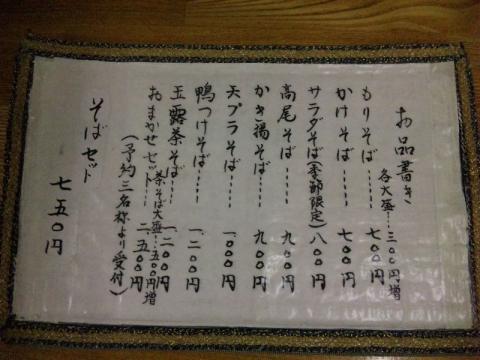 お品書き
各大盛…三〇〇円増
もりそば……七〇〇円
かけそば……七〇〇円
サラダそば(季節限定)八〇〇円
高尾そば……九〇〇円
かき揚そば……九〇〇円
天プラそば……一、〇〇〇円
鴨つけそば……一、二〇〇円
玉露茶そば……一、二〇〇円
茶そば大盛…五〇〇円増
おまかせセット……二、五〇〇円
(予約三名称より受付)
そばセット
七五〇円